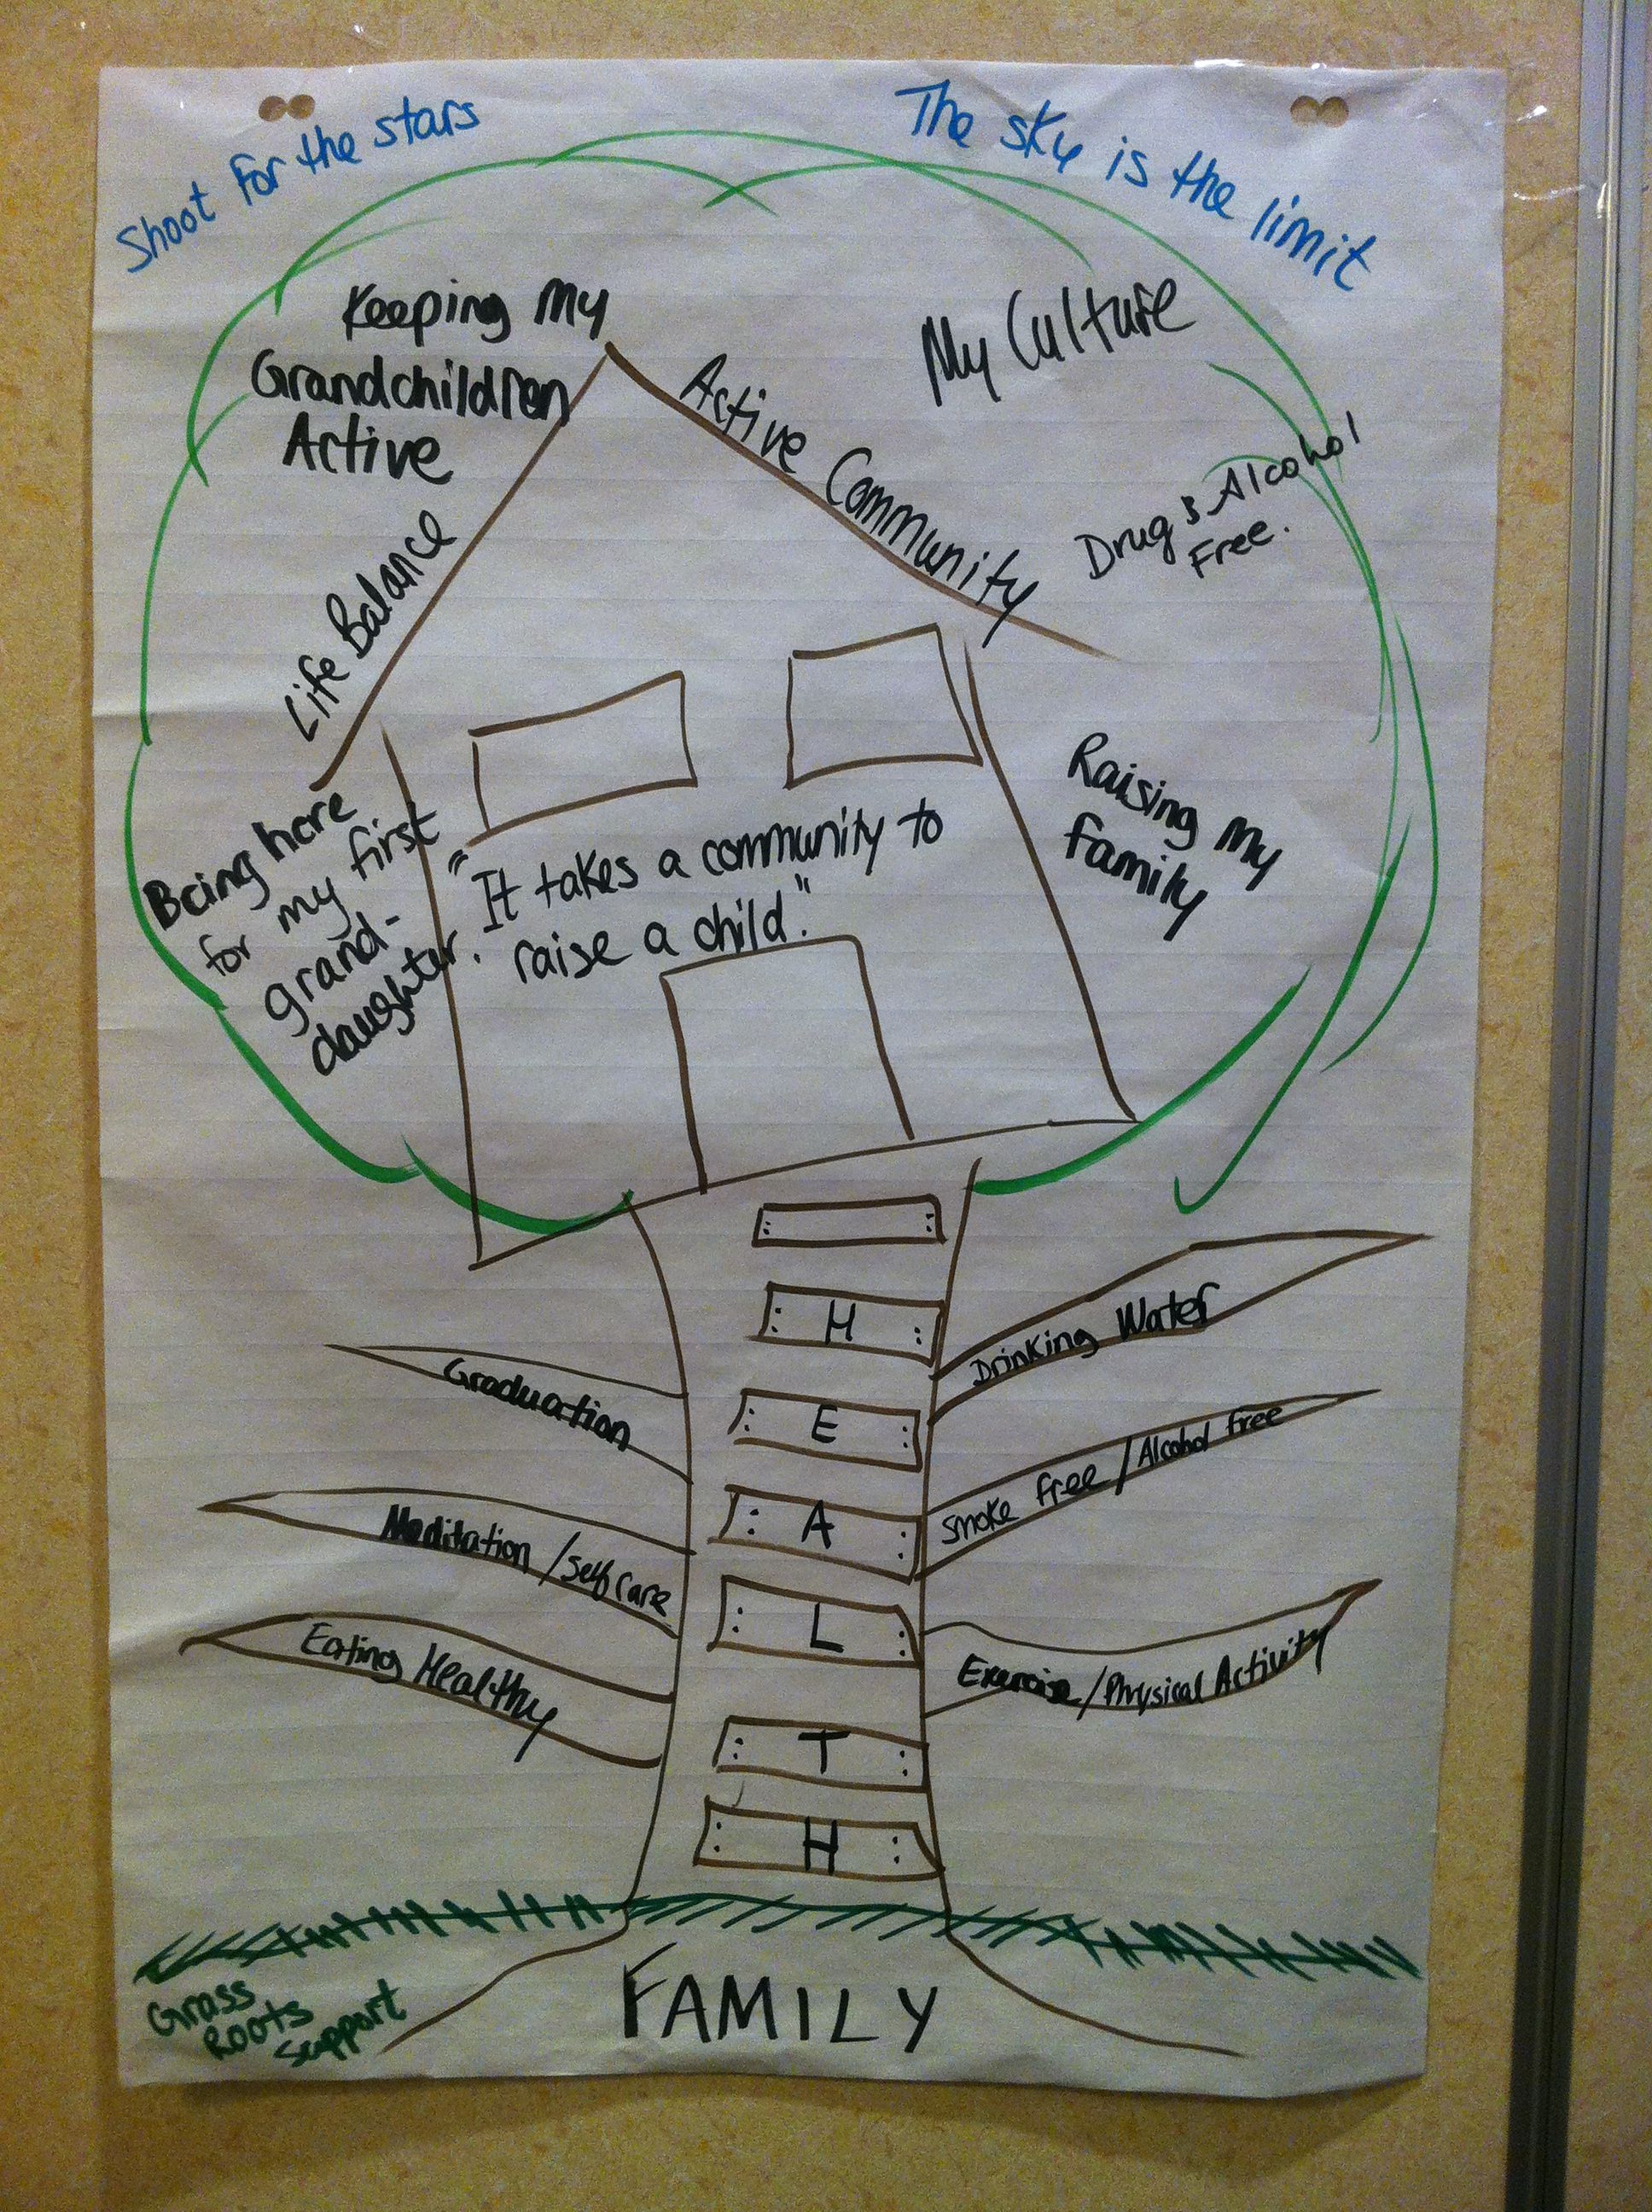 Shoot for the stars
The sky is the limit
Keeping my
Grandchildren
Active
My Culture
Active Community
Drug & Alcohol
Free.
Life Balance
Raising my
family
Being here
for my first
grand-
daughter.
"It takes a community to
raise a child."
H
E
A
L
T
H
Graduation
Meditation / Self care
Eating Healthy
Drinking Water
Smoke free / Alcohol free
Exercise / Physical Activity
Grass
Roots
Support
FAMILY